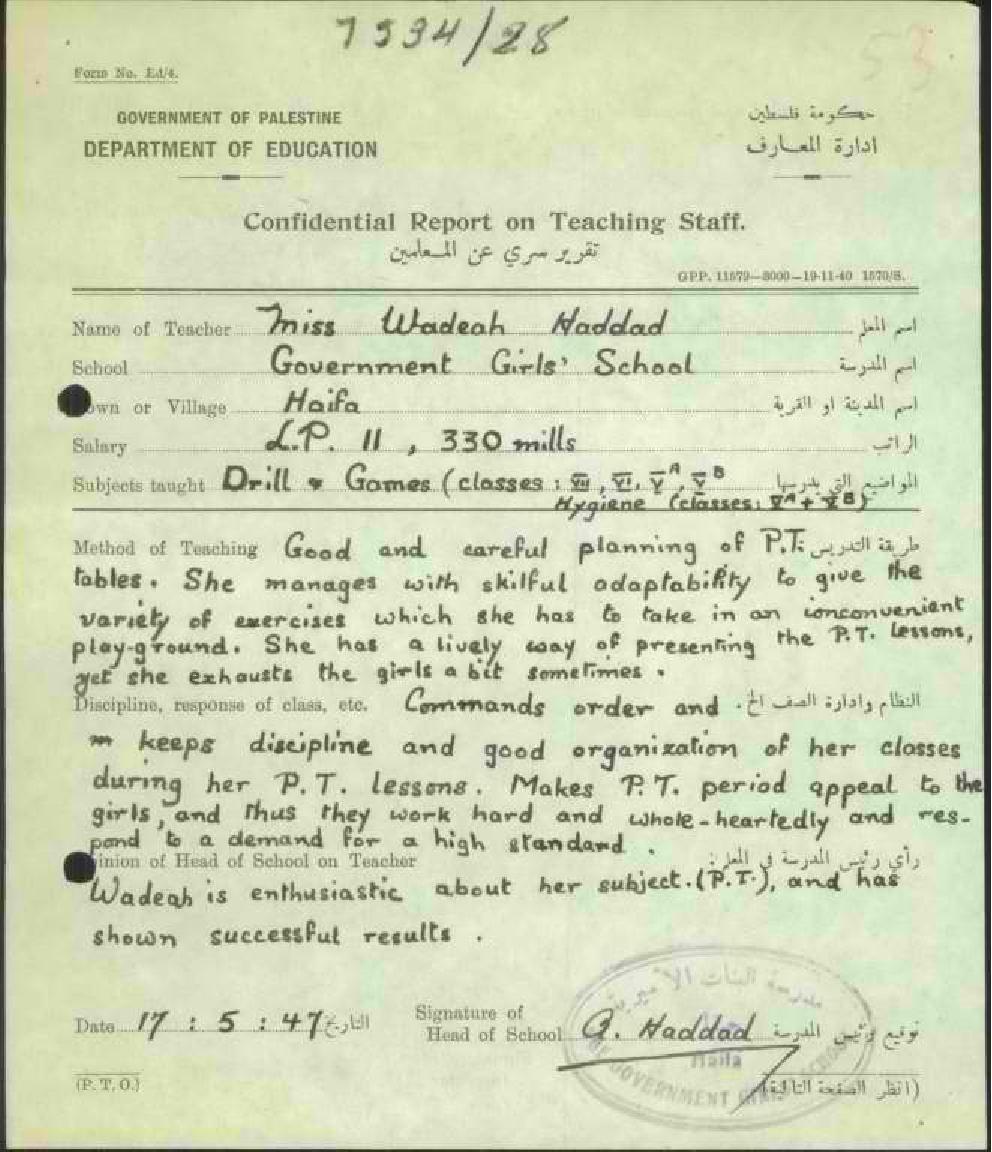 7534/28
53
Form No. Ed/4.
GOVERNMENT OF PALESTINE
حكومة فلسطين
DEPARTMENT OF EDUCATION
ادارة المعارف
Confidential Report on Teaching Staff.
تقرير سري عن المعلمين
GPP. 11579—8000—19-11-40 1570/S.
Name of Teacher Miss Wadeah Haddad اسم المعلم
School Government Girls' School اسم المدرسة
Town or Village Haifa اسم المدينة او القرية
Salary L.P. 11 , 330 mills الراتب
Subjects taught Drill & Games (classes : VII, VI, V A, V B المواضيع التي يدرسها
Hygiene (classes: V A + V B)
Method of Teaching Good and careful planning of P.T. طريقة التدريس
tables. She manages with skilful adaptability to give the
variety of exercises which she has to take in an inconvenient
play-ground. She has a lively way of presenting the P.T. lessons,
yet she exhausts the girls a bit sometimes.
Discipline, response of class, etc. Commands order and النظام وادارة الصف الخ.
keeps discipline and good organization of her classes
during her P.T. lessons. Makes P.T. period appeal to the
girls, and thus they work hard and whole-heartedly and res-
pond to a demand for a high standard.
inion of Head of School on Teacher رأي رئيس المدرسة في المعلم:
Wadeah is enthusiastic about her subject. (P.T.), and has
shown successful results.
مدرسة البنات الاميرية
Date 17 : 5 : 47 التاريخ
Signature of
Head of School G. Haddad توقيع رئيس المدرسة
Haifa
GOVERNMENT GIRLS
(P. T. O.)
(انظر الصفحة التالية)